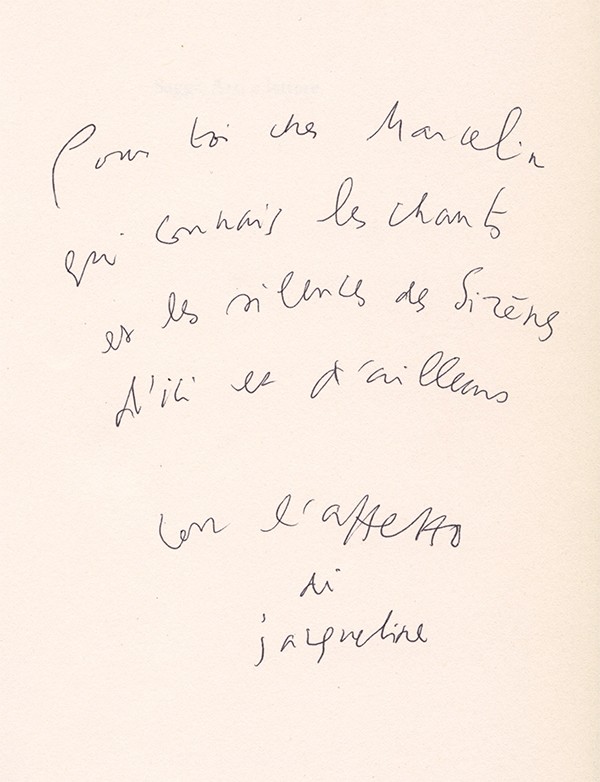 Pour toi cher Marcelin
qui connais les chants
et les silences des Sirènes
d'ici et d'ailleurs
con l'affetto
di
jacqueline